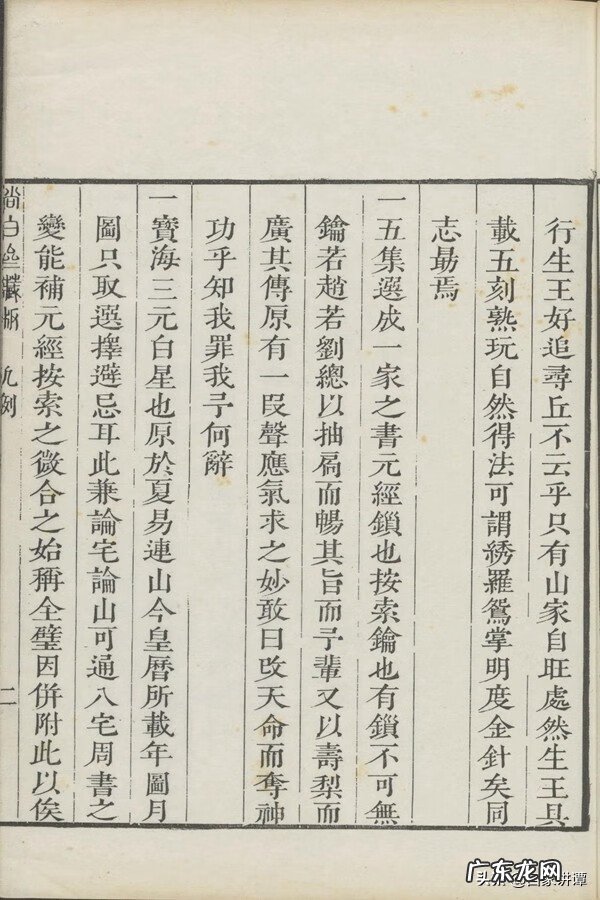 行生王好追尋丘不云乎只有山家自旺處然生王具
載五刻熟玩自然得法可謂綉羅鴛掌明度金針矣同
志勗焉
一五集選成一家之書元經鎖也按索鑰也有鎖不可無
鑰若趙若劉總以抽扃而暢其旨而予輩又以壽梨而
廣其傳原有一段聲應氣求之妙敢曰改天命而奪神
功乎知我罪我予何辭
一寶海三元白星也原於夏易連山今皇曆所載年圖月
圖只取選擇避忌耳此兼論宅論山可通八宅周書之
變能補元經按索之微合之始稱全璧因併附此以俟
凡例
二
广东龙网